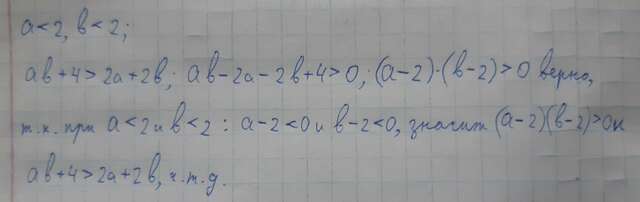 a<2, в<2;
aв+4>2a+2в; aв-2a-2в+4>0; (a-2)·(в-2)>0 верно,
т.к. при a<2 и в<2: a-2<0 и в-2<0, значит (a-2)(в-2)>0 и
aв+4>2a+2в, ч.т.д.